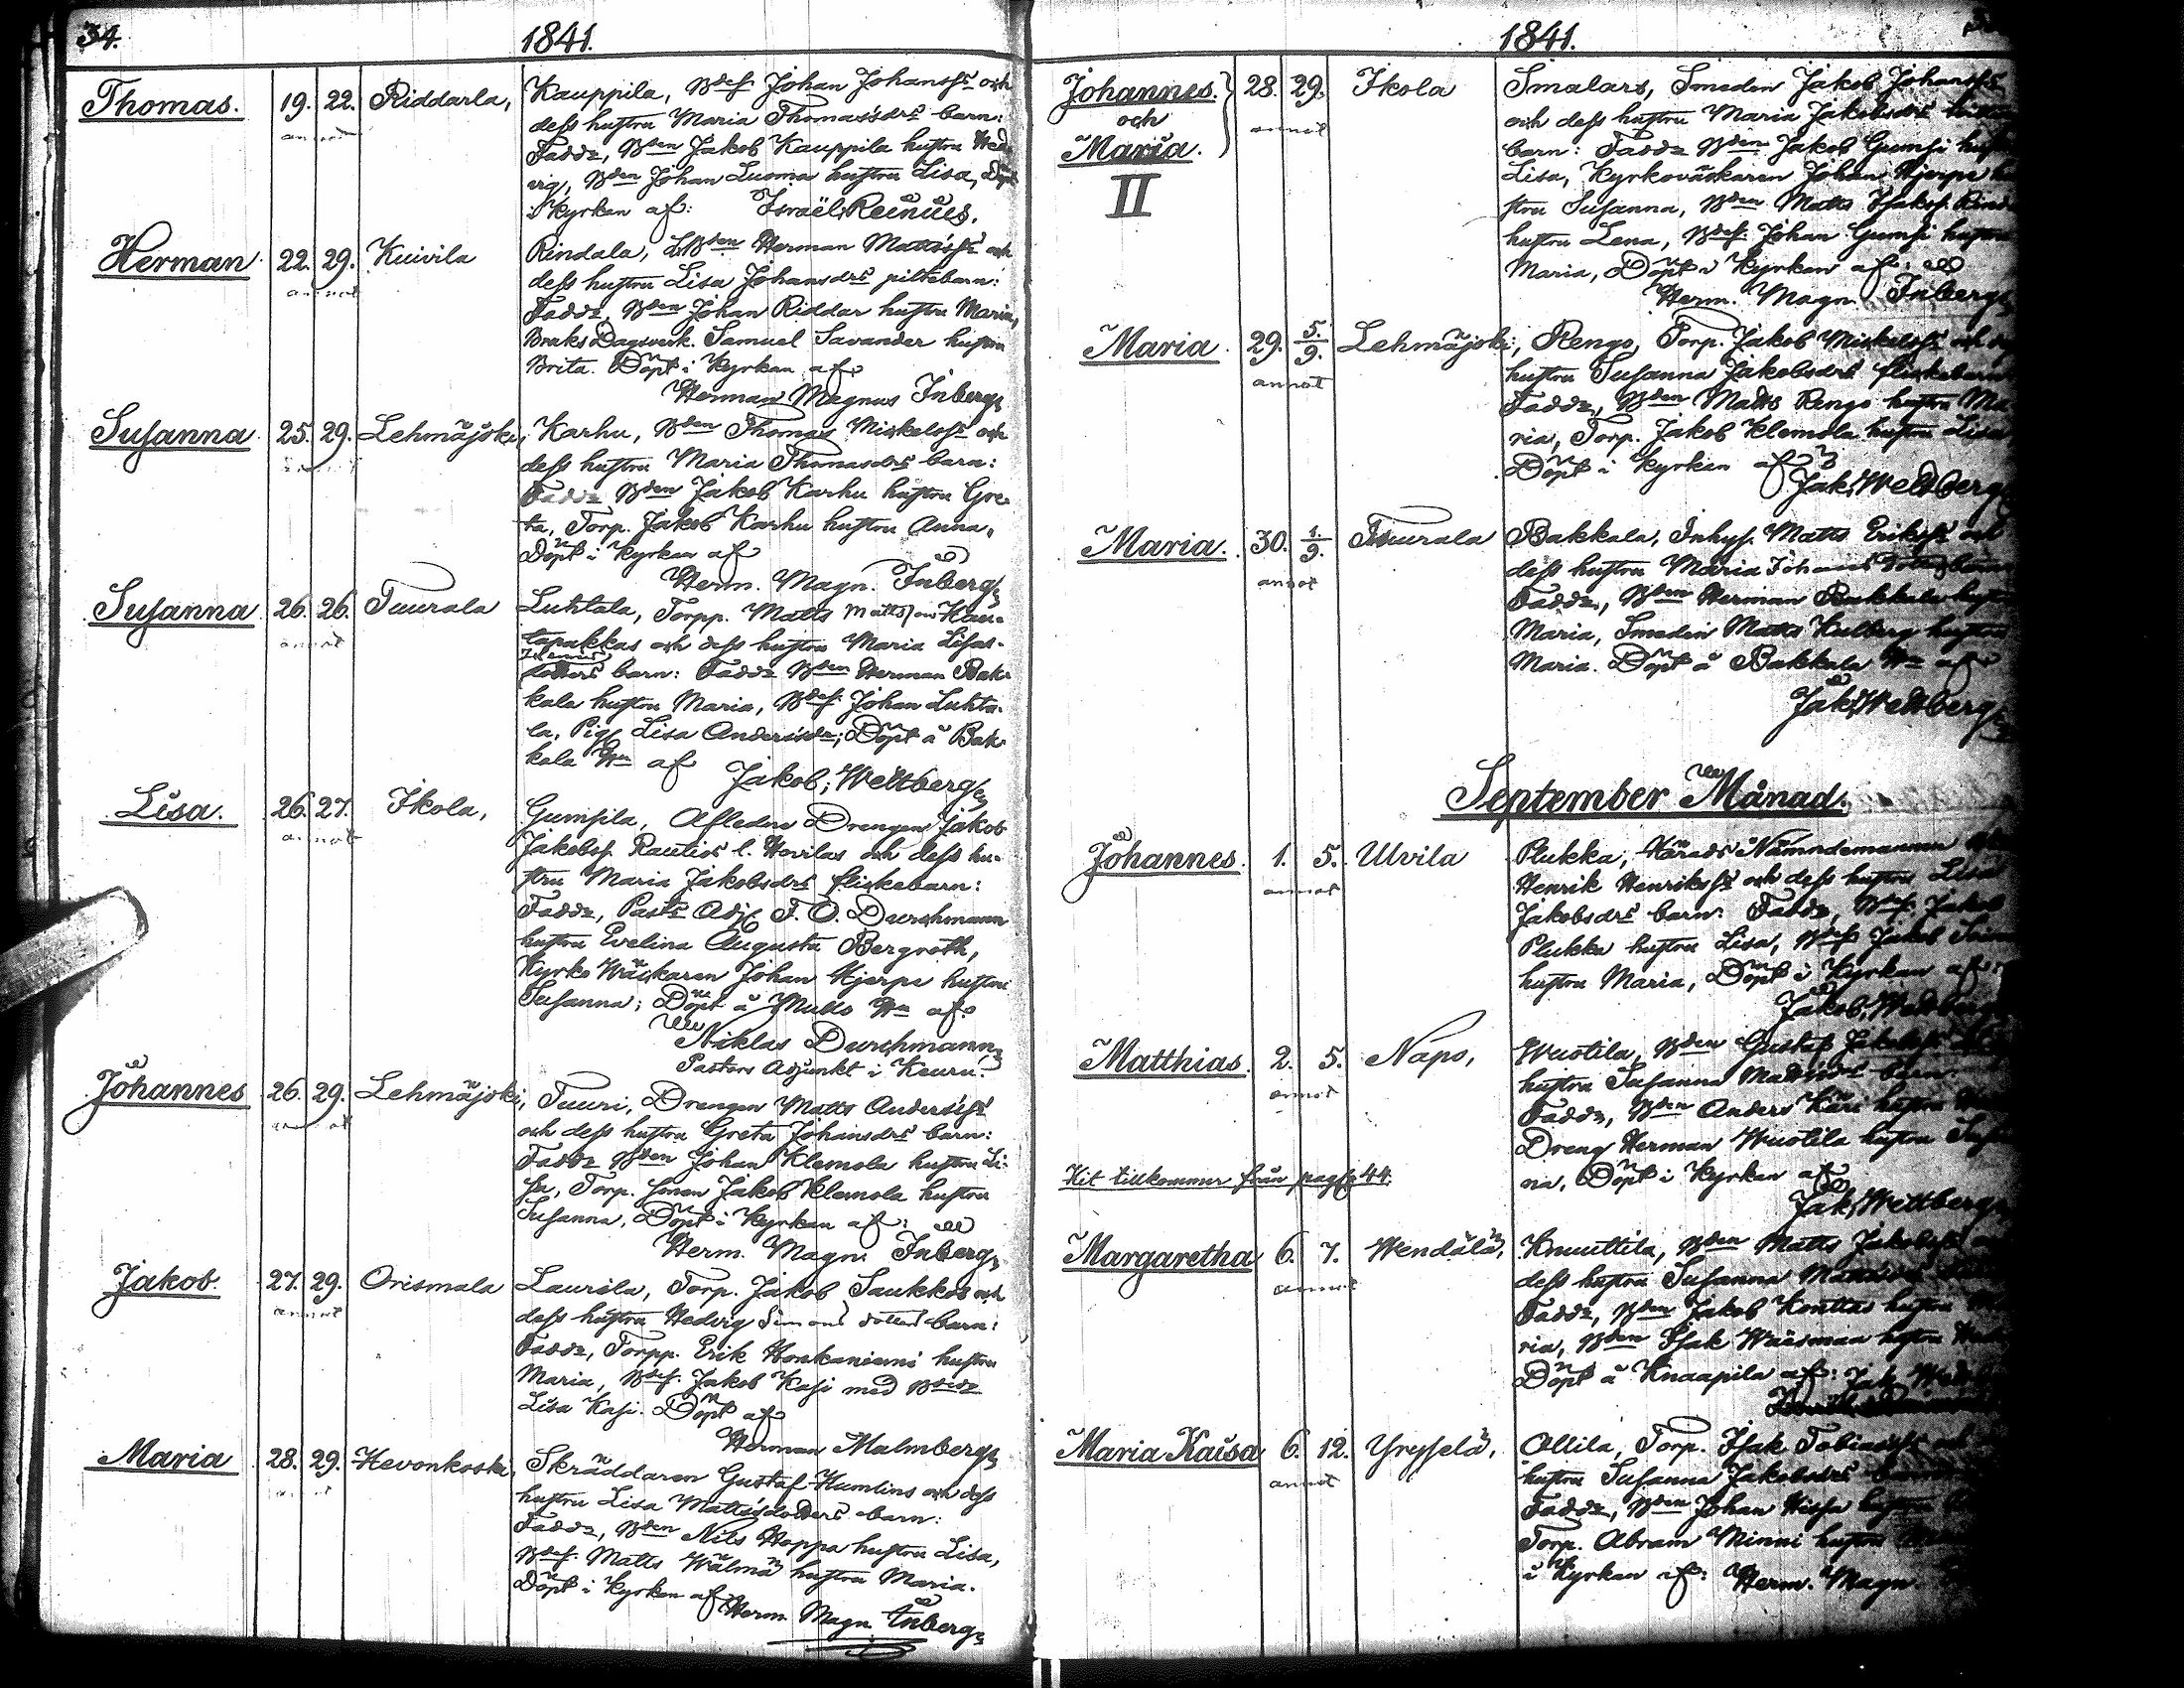 34.
1841.
Thomas. 19. 22. Riddarla, Kauppila, Bdes. Johan Johansss och
annot
dess hustru Maria Thomasdrs barn:
Fadd, Bden Jakob Kauppila hustru Hed
vig, Bden Johan Luoma hustru Lisa, Döpt
i kyrkan af: Israël Reinius.
Herman 22. 29. Kuivila Rindala, Bden Herman Mattsss och
annot
dess hustru Lisa Johansdrs piltebarn:
Fadd, Bden Johan Riddar hustru Maria,
Bruks Dagsverk. Samuel Savander hustru
Brita. Döpt i kyrkan af
Herman Magnus Inberg
Susanna 25. 29. Lehmäjoki, Karhu, Bden Thomas Mickelsss och
dess hustru Maria Thomasdrs barn:
Fadd Bden Jakob Karhu hustru Gre-
ta, Torp. Jakob Karhu hustru Anna,
Döpt i kyrkan af
Herm. Magn. Inberg
Susanna 26. 26. Tuurala Luhtala, Torpp. Matts Mattsson Klau-
annot
tapakkas och dess hustru Maria Lisas-
dotters barn: Fadd Bden Herman Bak-
kala hustru Maria, Bdes. Johan Luhta-
la, Pig. Lisa Andersdr; Döpt å Bak-
kala Hn af Jakob Wettberg
Lisa. 26. 27. Ikola, Gumsila, Afledne Drengen Jakob
annot
Jakobss. Rautios l. Hovilas och dess hu-
stru Maria Jakobsdrs flickebarn:
Fadd, Pasts Adj. F. O. Durchmann
hustru Evelina Augusta Bergroth,
Kyrko Wäckaren Johan Hjerpe hustru
Susanna; Döpt å Mullo Hn af
Niklas Durchmann
Pastors Adjunkt i Keuru.
Johannes 26. 29. Lehmäjoki, Tuuri, Drengen Matts Andersss
och dess hustru Greta Johansdrs barn:
Fadd Bden Johan Klemola hustru Li-
sa, Torp. sonen Jakob Klemola hustru
Susanna, Döpt i Kyrkan af:
Herm. Magn. Inberg
Jakob. 27. 29. Orismala Laurila, Torp. Jakob Saukkos och
annot
dess hustru Hedvig Simons dotters barn:
Fadd, Torpp. Erik Honkaniemi hustru
Maria, Bdes. Jakob Kasi med
Lisa Kasi. Döpt af
Herman Malmberg
Maria 28. 29. Hevonkoska, Skräddaren Gustaf Humlins och dess
hustru Lisa Mattsdotters barn:
Fadd, Bden Nils Hoppa hustru Lisa,
Bdes. Matts Wälmä hustru Maria.
Döpt i kyrkan af
Herm. Magn. Inberg
1841.
Johannes. 28. 29. Ikola Smalars, Smeden Jakob Johansss
och annot
och dess hustru Maria Jakobsdrs
Maria. barn: Fadd Bden Jakob Gumsi
II Lisa, Kyrkoväckaren Johan Hjerpe hu
stru Susanna, Bden Matts
hustru Lena, Bdes. Johan Gumsi hustru
Maria, Döpt i Kyrkan af:
Herm. Magn. Inberg
Maria 29. 5./9. Lehmäjoki, Rengo, Torp. Jakob Mickelsss och
annot
hustru Susanna Jakobsdrs flickebarn
Fadd, Bden Matts Rengo hustru Ma
ria, Torp. Jakob Klemola hustru Lisa
Döpt i kyrkan af
Jak. Wettberg
Maria. 30. 1./9. Tuurala Bakkala, Inhys. Matts Eriksss och
annot
dess hustru Maria Johans dotters barn
Fadd, Bden Herman Bakkala
Maria, Smeden Matts Kulberg hustru
Maria. Döpt å Bakkala Hn af
Jak. Wettberg
September Månad.
Johannes. 1. 5. Ulvila Plukka, Härads Nämndemannen
annot
Henrik Henriksss och dess hustru Lisa
Jakobsdrs barn: Fadd, Bdes. Jakob
Plukka hustru Lisa, Bdes. Jakob
hustru Maria, Döpt i Kyrkan af
Jakob Wettberg
Matthias. 2. 5. Napo, Wuotila, Bden Gustaf
annot
hustru Susanna
Fadd, Bden Anders Käri hustru
Dreng Herman Wuotila hustru
na, Döpt i Kyrkan af
Hit tillkommer från pag. 44.
Jak. Wettberg
Margaretha 6. 7. Wendälä, Knuuttila, Bden Matts
annot
dess hustru Susanna
Fadd, Bden Jakob Konttas hustru
ria, Bden Isak Wäisman hustru
Döpt å Knaapila af: Jak.
Maria Kaisa 6. 12. Yryselä, Ollila, Torp. Isak Tobiasss
annot
hustru Susanna Jakobsdrs
Fadd, Bden Johan
Torp. Abram Minni hustru
i Kyrkan af: Herm. Magn.